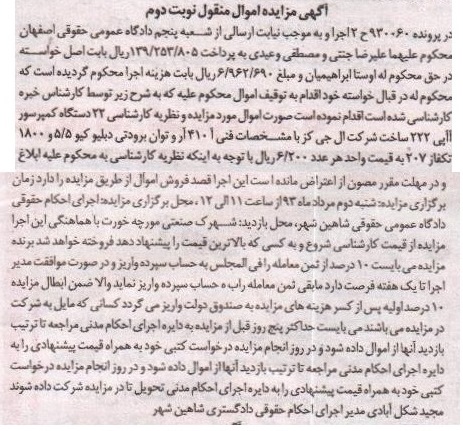 آگهی مزایده اموال منقول نوبت دوم
در پرونده ۹۳۰۰۶۰ ح ۲ اجرا و به موجب نیابت ارسالی از شعبه پنجم دادگاه عمومی حقوقی اصفهان
محکوم علیهما علیرضا جنتی و مصطفی وعیدی به پرداخت ۱۳۹/۲۵۳/۸۰۵ ریال بابت اصل خواسته
در حق محکوم له اوستا ابراهیمیان و مبلغ ۶/۹۶۲/۶۹۰ ریال بابت هزینه اجرا محکوم گردیده است که
محکوم له در قبال خواسته خود اقدام به توقیف اموال محکوم علیه که به شرح زیر توسط کارشناس خبره
کارشناسی شده است اقدام نموده است صورت اموال مورد مزایده و نظریه کارشناسی ۲۲ دستگاه کمپرسور
آاپی ۲۲۲ ساخت شرکت ال جی کز با مشخصات فنی آ ۴۱۰ آر و توان برودتی دبلیو کیو ۵/۵ و ۱۸۰۰
تکفاز ۲۰۷ به قیمت واحد هر عدد ۶/۲۰۰ ریال با توجه به اینکه نظریه کارشناسی به محکوم علیه ابلاغ
و در مهلت مقرر مصون از اعتراض مانده است این اجرا قصد فروش اموال از طریق مزایده را دارد زمان
برگزاری مزایده: شنبه دوم مرداد ماه ۹۳ از ساعت ۱۱ الی ۱۲، محل برگزاری مزایده: اجرای احکام حقوقی
دادگاه عمومی حقوقی شاهین شهر، محل بازدید: شهرک صنعتی مورچه خورت با هماهنگی این اجرا
مزایده از قیمت کارشناسی شروع و به کسی که بالاترین قیمت را پیشنهاد دهد فروخته خواهد شد برنده
مزایده می بایست ۱۰ درصد از ثمن معامله را فی المجلس به حساب سپرده واریز و در صورت موافقت مدیر
اجرا تا یک هفته فرصت دارد مابقی ثمن معامله راب ه حساب سپرده واریز نماید والا ضمن ابطال مزایده
۱۰ درصد اولیه پس از کسر هزینه های مزایده به صندوق دولت واریز می گردد کسانی که مایل به شرکت
در مزایده می باشند می بایست حداکثر پنج روز قبل از مزایده به دایره اجرای احکام مدنی مراجعه تا ترتیب
بازدید آنها از اموال داده شود و در روز انجام مزایده درخواست کتبی خود به همراه قیمت پیشنهادی را به
دایره اجرای احکام مدنی مراجعه تا ترتیب بازدید آنها از اموال داده شود و در روز انجام مزایده درخواست
کتبی خود به همراه قیمت پیشنهادی را به دایره اجرای احکام مدنی تحویل تا در مزایده شرکت داده شوند
مجید شکل آبادی مدیر اجرای احکام حقوقی دادگستری شاهین شهر